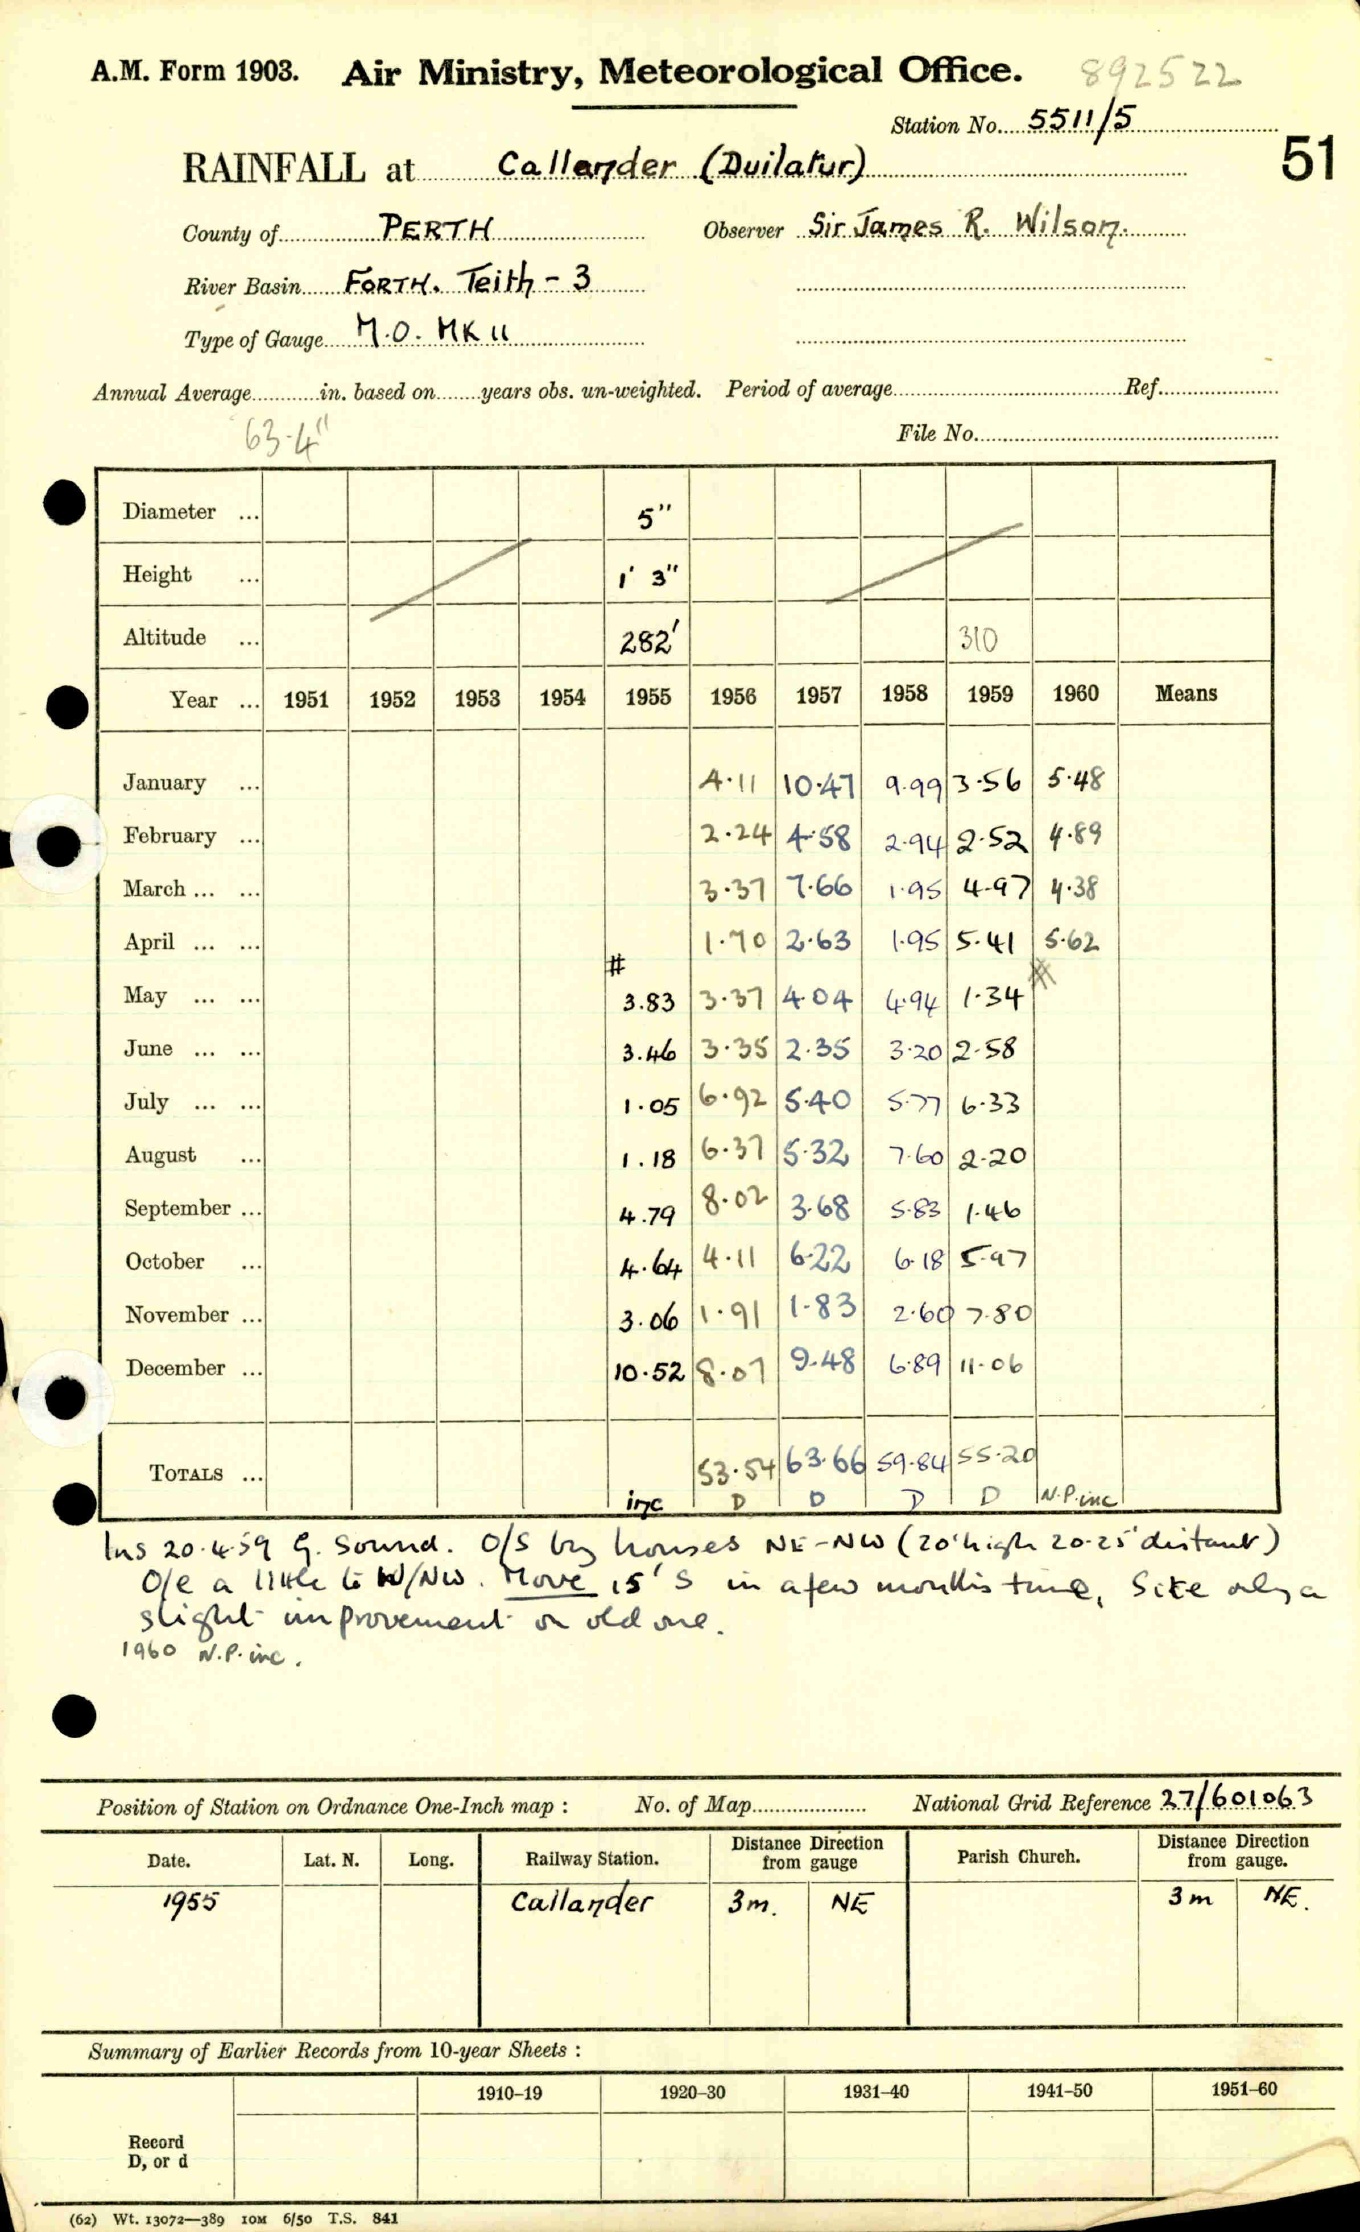 A.M. Form 1903. Air Ministry, Meteorological Office. 892522
Station No. 5511/5
51
RAINFALL at Callander (Duilatur)
County of PERTH Observer Sir James R. Wilson.
River Basin FORTH. Teith - 3
Type of Gauge M.O. MK II
Annual Average in. based on years obs. un-weighted. Period of average Ref.
63.4"
File No.
Diameter ... 5"
Height ... 1' 3"
Altitude ... 282' 310
Year ... 1951 1952 1953 1954 1955 1956 1957 1958 1959 1960 Means
January ... 4.11 10.47 9.99 3.56 5.48
February ... 2.24 4.58 2.94 2.52 4.89
March ... ... 3.37 7.66 1.95 4.97 4.38
April ... ... 1.70 2.63 1.95 5.41 5.62
# #
May ... ... 3.83 3.37 4.04 4.94 1.34
June ... ... 3.46 3.35 2.35 3.20 2.58
July ... ... 1.05 6.92 5.40 5.77 6.33
August ... 1.18 6.37 5.32 7.60 2.20
September ... 4.79 8.02 3.68 5.83 1.46
October ... 4.64 4.11 6.22 6.18 5.97
November ... 3.06 1.91 1.83 2.60 7.80
December ... 10.52 8.07 9.48 6.89 11.06
TOTALS ... 53.54 63.66 59.84 55.20
inc D D D D N.P. inc
Ins 20.4.59 G. Sound. O/S by houses NE-NW (20' high 20-25' distant)
O/e a little to W/NW. Move 15' S in a few months time, Site only a
slight improvement on old one.
1960 N.P. inc.
Position of Station on Ordnance One-Inch map : No. of Map National Grid Reference 27/601063
Date. Lat. N. Long. Railway Station. Distance Direction from gauge Parish Church. Distance Direction from gauge.
1955 Callander 3m. NE 3m NE.
Summary of Earlier Records from 10-year Sheets :
1910-19 1920-30 1931-40 1941-50 1951-60
Record
D, or d
(62) Wt. 13072—389 10M 6/50 T.S. 841